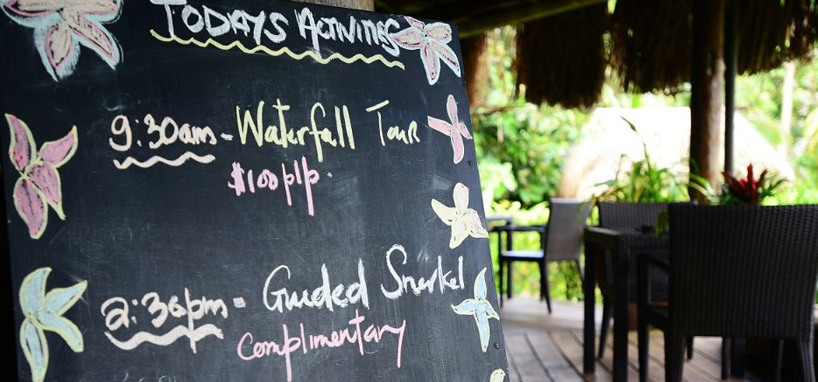 TODAYS ACTIVITIES
9:30am - Waterfall Tour
$100 p/p.
2:30pm - Guided Snorkel
Complimentary